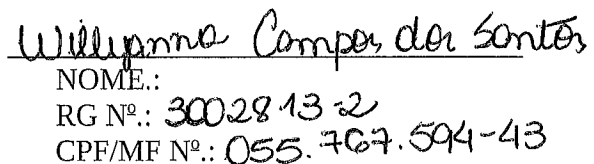 Willyanna Campos dos Santos
NOME.:
RG Nº.: 3002813-2
CPF/MF Nº.: 055.767.594-43